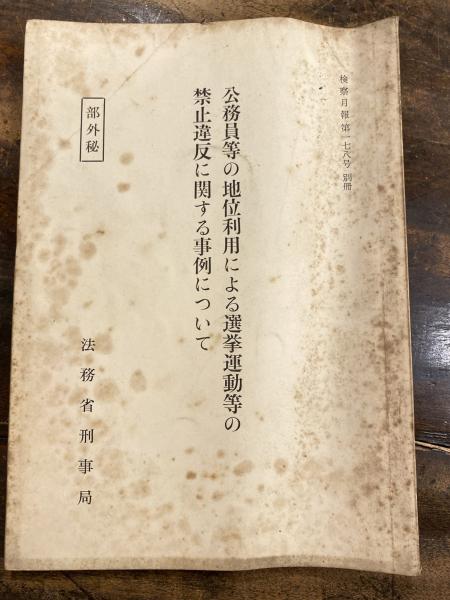 検察月報第一七八号 別冊
公務員等の地位利用による選挙運動等の
禁止違反に関する事例について
部外秘
法務省刑事局